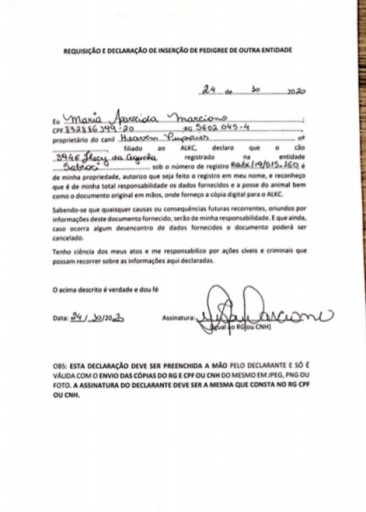 REQUISIÇÃO E DECLARAÇÃO DE INSERÇÃO DE PEDIGREE DE OUTRA ENTIDADE
24 de 10 2020
Eu Maria Aparecida Marciano,
CPF 832886399-20, RG 5602 045-4,
proprietário do canil Heaven nº
filiado ao ALKC, declaro que o cão
registrado na entidade
Sobraci sob o número de registro
de minha propriedade, autorizo que seja feito o registro em meu nome, e reconheço
que é de minha total responsabilidade os dados fornecidos e a posse do animal bem
como o documento original em mãos, onde forneço a cópia digital para o ALKC.
Sabendo-se que quaisquer causas ou consequências futuras recorrentes, oriundos por
informações deste documento fornecido, serão de minha responsabilidade. E que ainda,
caso ocorra algum desencontro de dados fornecidos o documento poderá ser
cancelado.
Tenho ciência dos meus atos e me responsabilizo por ações cíveis e criminais que
possam recorrer sobre as informações aqui declaradas.
O acima descrito é verdade e dou fé
Data: 24/10/2020 Assinatura: Marciano
(Igual ao RG ou CNH)
OBS: ESTA DECLARAÇÃO DEVE SER PREENCHIDA A MÃO PELO DECLARANTE E SÓ É
VÁLIDA COM O ENVIO DAS CÓPIAS DO RG E CPF OU CNH DO MESMO EM JPEG, PNG OU
FOTO. A ASSINATURA DO DECLARANTE DEVE SER A MESMA QUE CONSTA NO RG CPF
OU CNH.